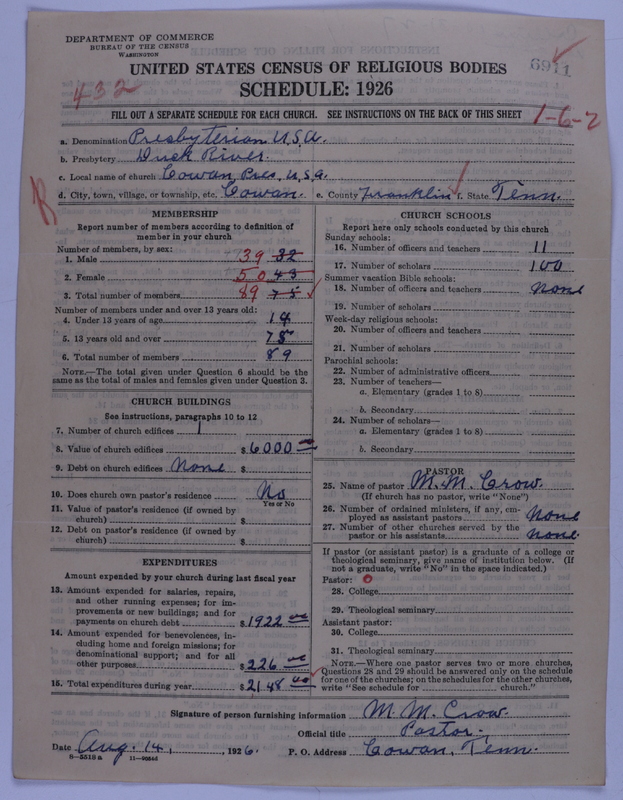 DEPARTMENT OF COMMERCE
BUREAU OF THE CENSUS
WASHINGTON
6911
UNITED STATES CENSUS OF RELIGIOUS BODIES
SCHEDULE: 1926
432
FILL OUT A SEPARATE SCHEDULE FOR EACH CHURCH. SEE INSTRUCTIONS ON THE BACK OF THIS SHEET
1-6-2
a. Denomination Presbyterian U.S.A.
b. Presbytery Duck River.
c. Local name of church Cowan, Pres. U.S.a.
d. City, town, village, or township, etc. Cowan. e. County Franklin f. State Tenn.
MEMBERSHIP
Report number of members according to definition of member in your church
Number of members, by sex:
1. Male 39 32
2. Female 50 43
3. Total number of members 89 75
Number of members under and over 13 years old:
4. Under 13 years of age 14
5. 13 years old and over 75
6. Total number of members 89
NOTE.—The total given under Question 6 should be the same as the total of males and females given under Question 3.
CHURCH BUILDINGS
See instructions, paragraphs 10 to 12
7. Number of church edifices 1
8. Value of church edifices $ 6000 00
9. Debt on church edifices None $
10. Does church own pastor's residence No
Yes or No
11. Value of pastor's residence (if owned by church) $
12. Debt on pastor's residence (if owned by church) $
EXPENDITURES
Amount expended by your church during last fiscal year
13. Amount expended for salaries, repairs, and other running expenses; for improvements or new buildings; and for payments on church debt $ 1922 00
14. Amount expended for benevolences, including home and foreign missions; for denominational support; and for all other purposes $ 226 00
15. Total expenditures during year $ 2148 00
CHURCH SCHOOLS
Report here only schools conducted by this church
Sunday schools:
16. Number of officers and teachers 11
17. Number of scholars 100
Summer vacation Bible schools:
18. Number of officers and teachers None
19. Number of scholars
Week-day religious schools:
20. Number of officers and teachers
21. Number of scholars
Parochial schools:
22. Number of administrative officers
23. Number of teachers—
a. Elementary (grades 1 to 8)
b. Secondary
24. Number of scholars—
a. Elementary (grades 1 to 8)
b. Secondary
PASTOR
25. Name of pastor M. M. Crow.
(If church has no pastor, write "None")
26. Number of ordained ministers, if any, employed as assistant pastors None
27. Number of other churches served by the pastor or his assistants None.
If pastor (or assistant pastor) is a graduate of a college or theological seminary, give name of institution below. (If not a graduate, write "No" in the space indicated.)
Pastor: 0
28. College
29. Theological seminary
Assistant pastor:
30. College
31. Theological seminary
NOTE.—Where one pastor serves two or more churches, Questions 28 and 29 should be answered only on the schedule for one of the churches; on the schedules for the other churches, write "See schedule for church."
Signature of person furnishing information M. M. Crow.
Official title Pastor.
Date Aug. 14, 1926. P. O. Address Cowan, Tenn.
8-5519 a